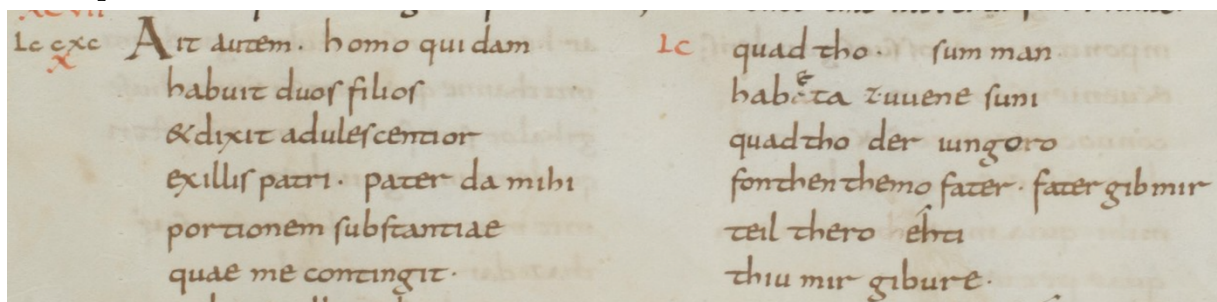 Lc cxc
x
Ait autem · homo quidam
habuit duos filios
& dixit adulescentior
exillis patri · pater da mihi
portionem substantiae
quae me contingit ·
Lc
quad tho · sum man
habata zuuene suni
quad tho der iungoro
fon then themo fater · fater gib mir
teil thero ehti
thiu mir gibure ·